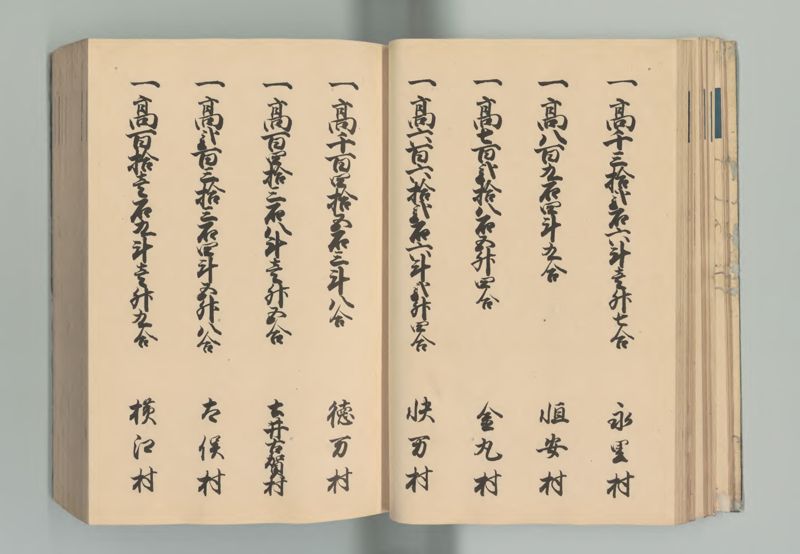 一高千三拾弐石六斗壱升七合　永里村
一高八百九石四斗九合　恒安村
一高七百弐拾八石五升四合　金丸村
一高六百六拾弐石六斗弐升四合　快万村
一高千百四拾五石三斗八合　徳万村
一高百四拾三石八斗壱升五合　土井古賀村
一高弐百三拾三石四斗五升八合　太俣村
一高百拾壱石九斗壱升九合　横江村